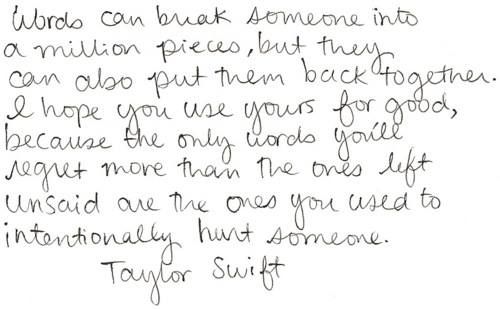 Words can break someone into
a million pieces, but they
can also put them back together.
I hope you use yours for good,
because the only words you'll
regret more than the ones left
unsaid are the ones you used to
intentionally hurt someone.
Taylor Swift